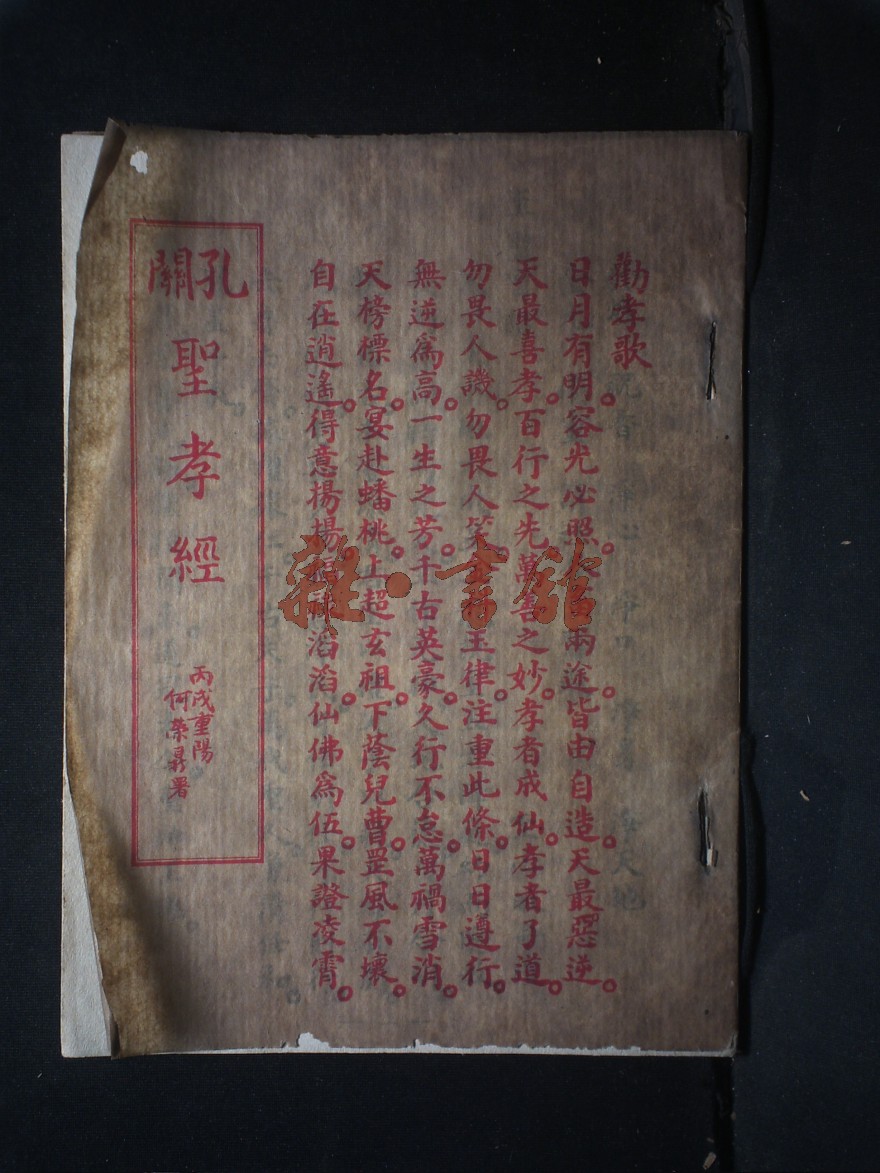 勸孝歌
日月有明。容光必照。兩途。皆由自造。天最惡逆。
天最喜孝。百行之先。萬善之妙。孝者成仙。孝者了道。
勿畏人譏。勿畏人笑。玉律。注重此條。日日遵行。
無逆爲高。一生之芳。千古英豪。久行不怠。萬禍雪消。
天榜標名。宴赴蟠桃。上超玄祖。下蔭兒曹。罡風不壞。
自在逍遙。得意揚揚。滔滔。仙佛爲伍。果證凌霄。
孔關聖孝經
丙戌重陽
何榮署
雜·書館